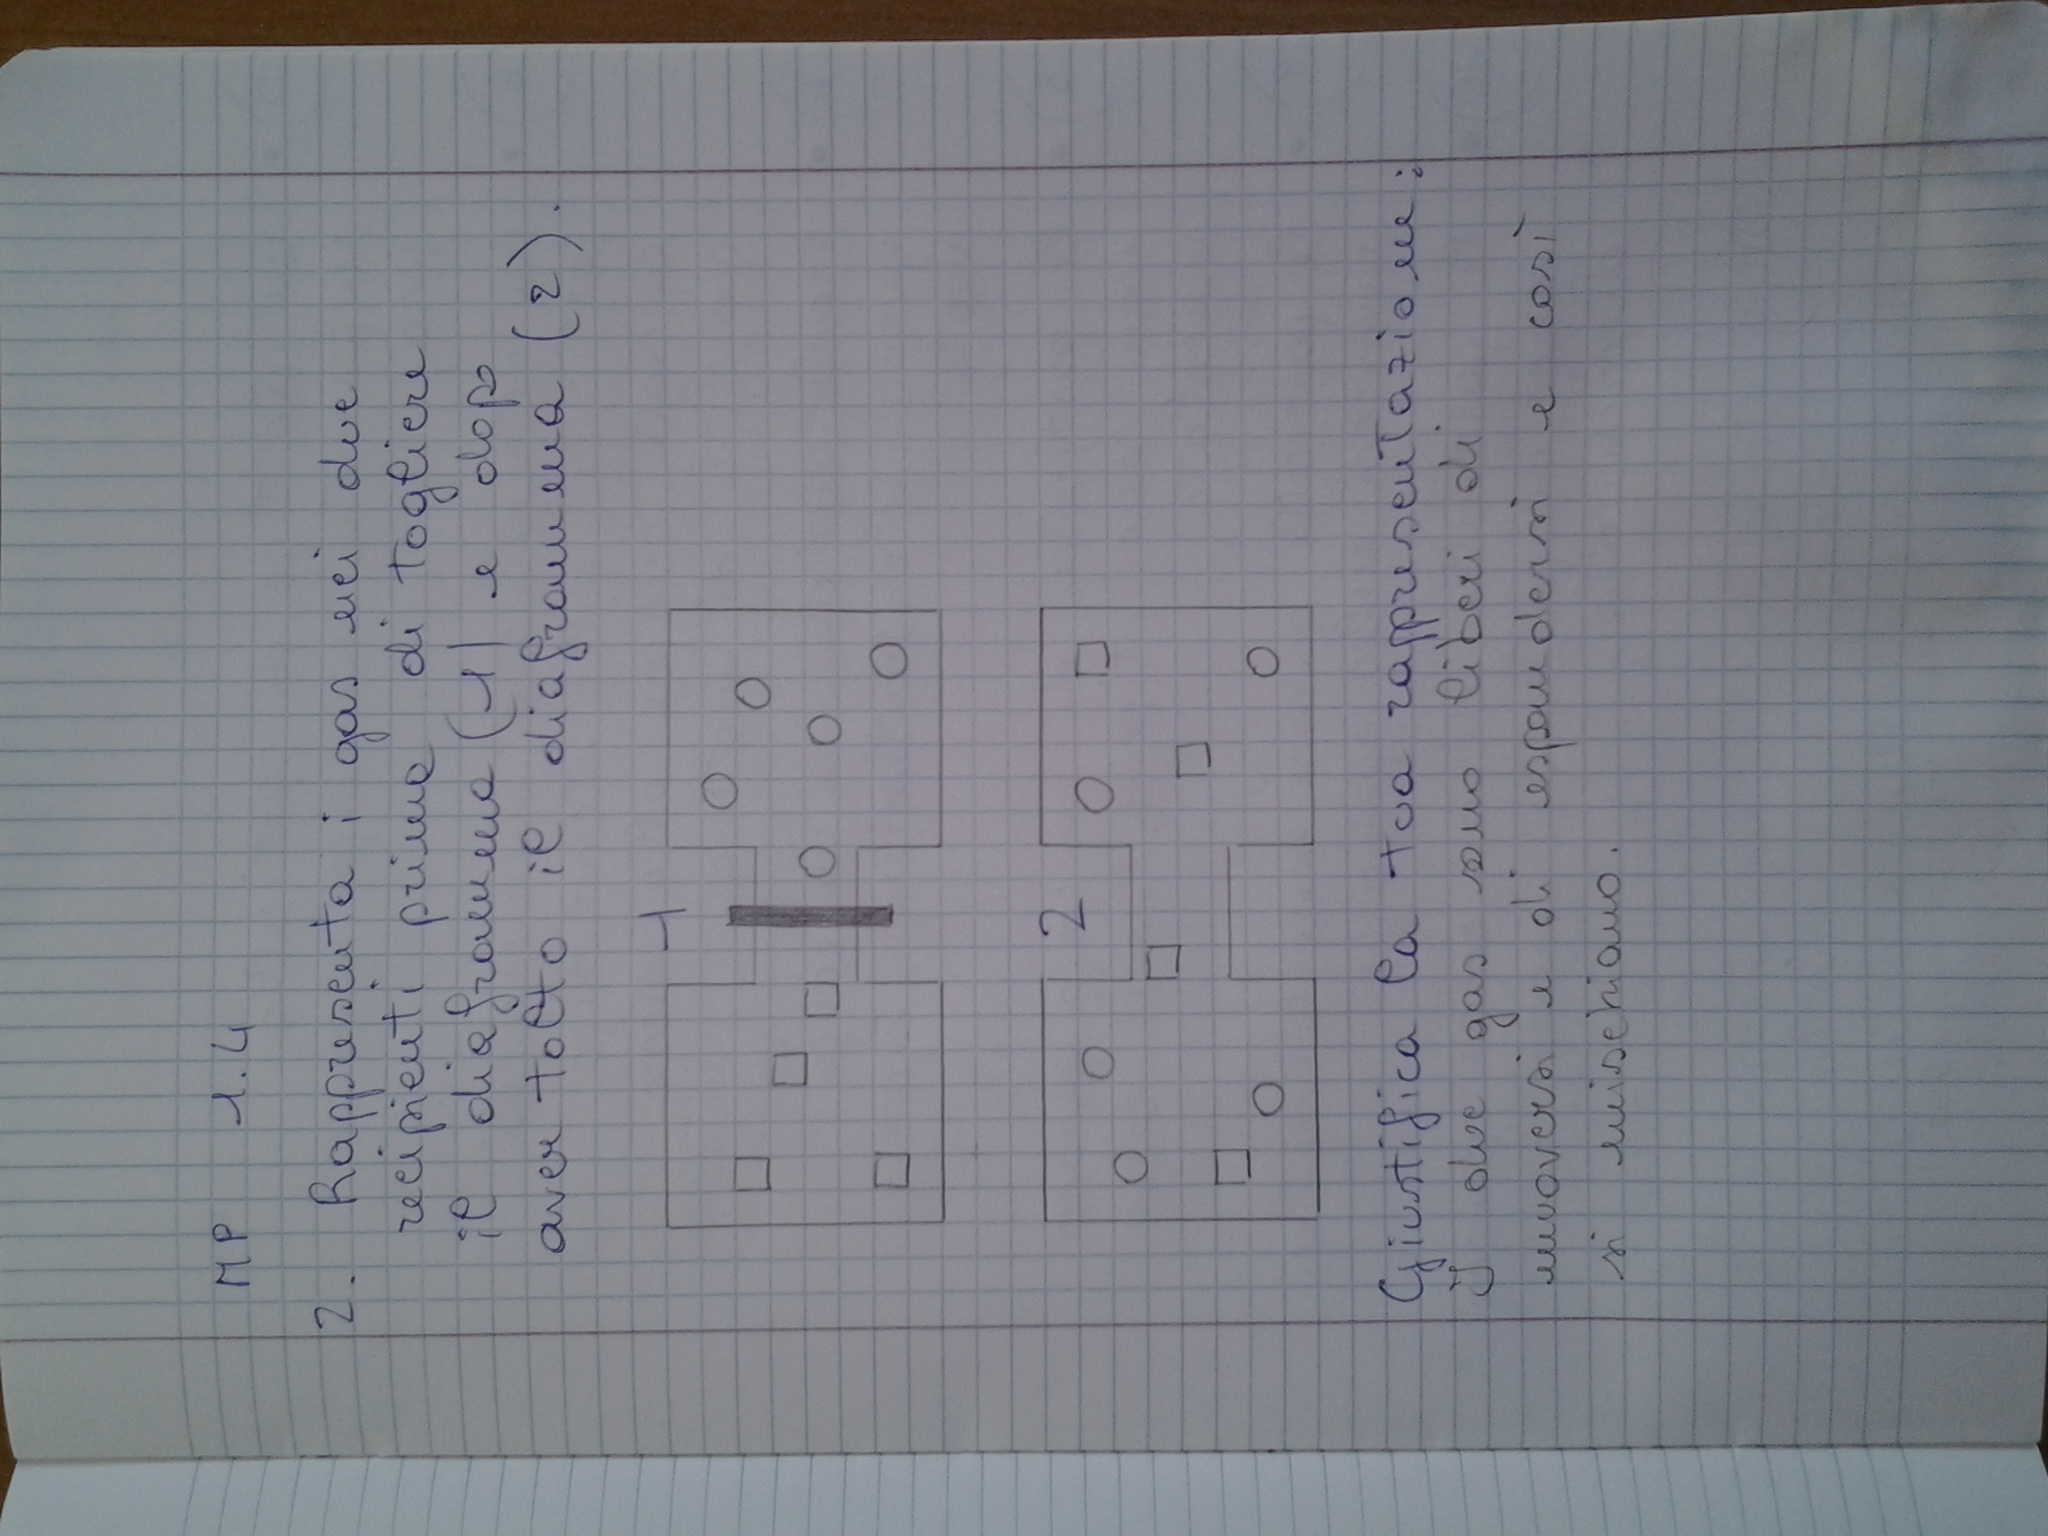 MP 1.4
2. Rappresenta i gas nei due
recipienti prima di togliere
il diaframma (1) e dop
aver tolto il diaframma (2).
1
2
Giustifica la tua rappresentazione:
I due gas sono liberi di
muoversi e di espandersi e così
si mischiano.